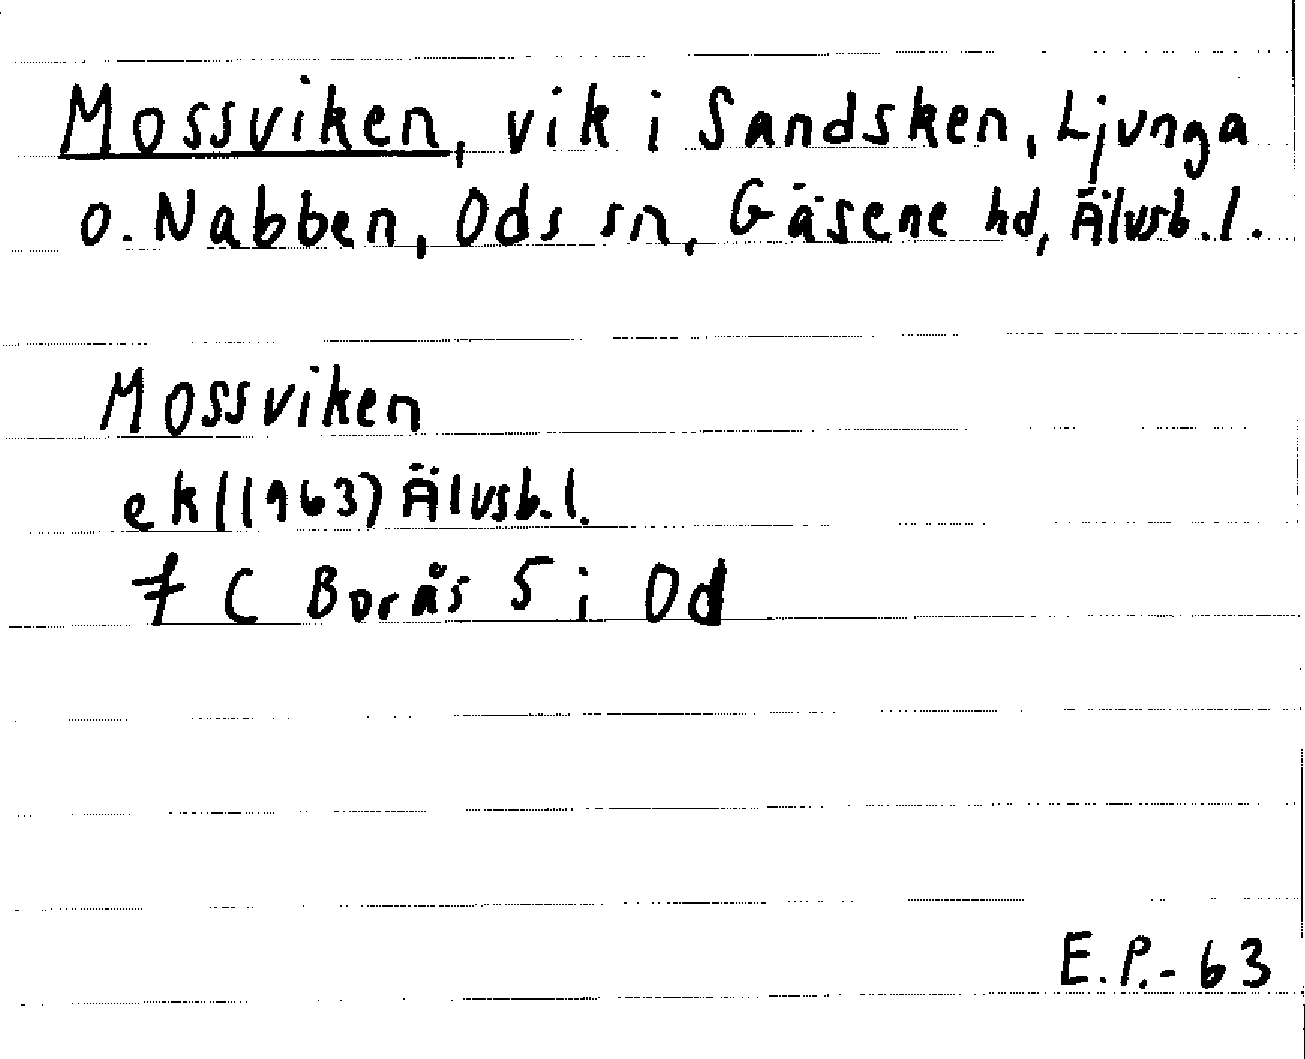 Mossviken, vik i Sandsken, Ljunga
o. Nabben, Ods sn, Gäsene hd, Älvsb. l.
Mossviken
ek (1963) Älvsb. l.
7 C Borås 5 i Od
E.P.-63